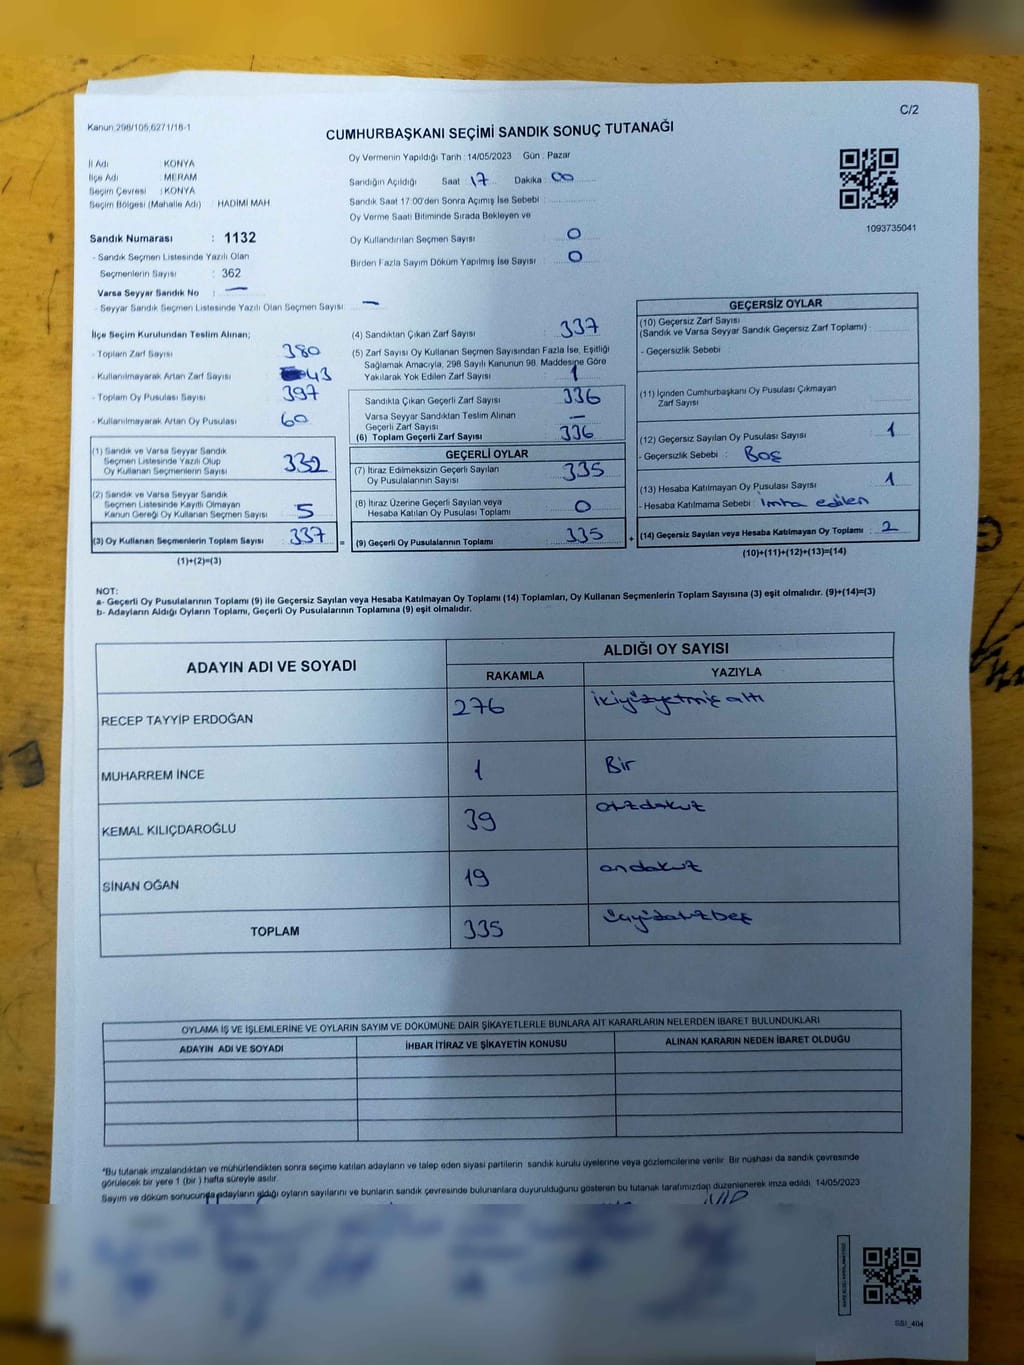 C/2
Kanun:298/105,6271/18-1
CUMHURBAŞKANI SEÇİMİ SANDIK SONUÇ TUTANAĞI
İl Adı : KONYA
İlçe Adı : MERAM
Seçim Çevresi : KONYA
Seçim Bölgesi (Mahalle Adı) : HADİMİ MAH
Sandık Numarası : 1132
- Sandık Seçmen Listesinde Yazılı Olan
Seçmenlerin Sayısı : 362
Varsa Seyyar Sandık No : —
- Seyyar Sandık Seçmen Listesinde Yazılı Olan Seçmen Sayısı: —
Oy Vermenin Yapıldığı Tarih : 14/05/2023 Gün : Pazar
Sandığın Açıldığı Saat : 17 Dakika : 00
Sandık Saat 17:00'den Sonra Açımış İse Sebebi :
Oy Verme Saati Bitiminde Sırada Bekleyen ve
Oy Kullandırılan Seçmen Sayısı : 0
Birden Fazla Sayım Döküm Yapılmış İse Sayısı : 0
1093735041
İlçe Seçim Kurulundan Teslim Alınan;
- Toplam Zarf Sayısı : 380
- Kullanılmayarak Artan Zarf Sayısı : 43
- Toplam Oy Pusulası Sayısı : 397
- Kullanılmayarak Artan Oy Pusulası : 60
(1) Sandık ve Varsa Seyyar Sandık
Seçmen Listesinde Yazılı Olup
Oy Kullanan Seçmenlerin Sayısı : 332
(2) Sandık ve Varsa Seyyar Sandık
Seçmen Listesinde Kayıtlı Olmayan
Kanun Gereği Oy Kullanan Seçmen Sayısı : 5
(3) Oy Kullanan Seçmenlerin Toplam Sayısı : 337 =
(1)+(2)=(3)
(4) Sandıktan Çıkan Zarf Sayısı : 337
(5) Zarf Sayısı Oy Kullanan Seçmen Sayısından Fazla İse, Eşitliği
Sağlamak Amacıyla, 298 Sayılı Kanunun 98. Maddesine Göre
Yakılarak Yok Edilen Zarf Sayısı : 1
Sandıkta Çıkan Geçerli Zarf Sayısı : 336
Varsa Seyyar Sandıktan Teslim Alınan
Geçerli Zarf Sayısı : —
(6) Toplam Geçerli Zarf Sayısı : 336
GEÇERLİ OYLAR
(7) İtiraz Edilmeksizin Geçerli Sayılan
Oy Pusulalarının Sayısı : 335
(8) İtiraz Üzerine Geçerli Sayılan veya
Hesaba Katılan Oy Pusulası Toplamı : 0
(9) Geçerli Oy Pusulalarının Toplamı : 335 +
GEÇERSİZ OYLAR
(10) Geçersiz Zarf Sayısı
(Sandık ve Varsa Seyyar Sandık Geçersiz Zarf Toplamı) :
- Geçersizlik Sebebi :
(11) İçinden Cumhurbaşkanı Oy Pusulası Çıkmayan
Zarf Sayısı :
(12) Geçersiz Sayılan Oy Pusulası Sayısı : 1
- Geçersizlik Sebebi : Boş
(13) Hesaba Katılmayan Oy Pusulası Sayısı : 1
- Hesaba Katılmama Sebebi : imha edilen
(14) Geçersiz Sayılan veya Hesaba Katılmayan Oy Toplamı : 2
(10)+(11)+(12)+(13)=(14)
NOT:
a- Geçerli Oy Pusulalarının Toplamı (9) ile Geçersiz Sayılan veya Hesaba Katılmayan Oy Toplamı (14) Toplamları, Oy Kullanan Seçmenlerin Toplam Sayısına (3) eşit olmalıdır. (9)+(14)=(3)
b- Adayların Aldığı Oyların Toplamı, Geçerli Oy Pusulalarının Toplamına (9) eşit olmalıdır.
ADAYIN ADI VE SOYADI
ALDIĞI OY SAYISI
RAKAMLA YAZIYLA
RECEP TAYYİP ERDOĞAN 276 ikiyüzyetmiş altı
MUHARREM İNCE 1 Bir
KEMAL KILIÇDAROĞLU 39 otuzdokuz
SİNAN OĞAN 19 ondokuz
TOPLAM 335 üçyüzotuzbeş
OYLAMA İŞ VE İŞLEMLERİNE VE OYLARIN SAYIM VE DÖKÜMÜNE DAİR ŞİKAYETLERLE BUNLARA AİT KARARLARIN NELERDEN İBARET BULUNDUKLARI
ADAYIN ADI VE SOYADI İHBAR İTİRAZ VE ŞİKAYETİN KONUSU ALINAN KARARIN NEDEN İBARET OLDUĞU
*Bu tutanak imzalandıktan ve mühürlendikten sonra seçime katılan adayların ve talep eden siyasi partilerin sandık kurulu üyelerine veya gözlemcilerine verilir. Bir nüshası da sandık çevresinde
görülecek bir yere 1 (bir ) hafta süreyle asılır.
Sayım ve döküm sonucunda adayların aldığı oyların sayılarını ve bunların sandık çevresinde bulunanlara duyurulduğunu gösteren bu tutanak tarafımızdan düzenlenerek imza edildi. 14/05/2023
SBİ_404